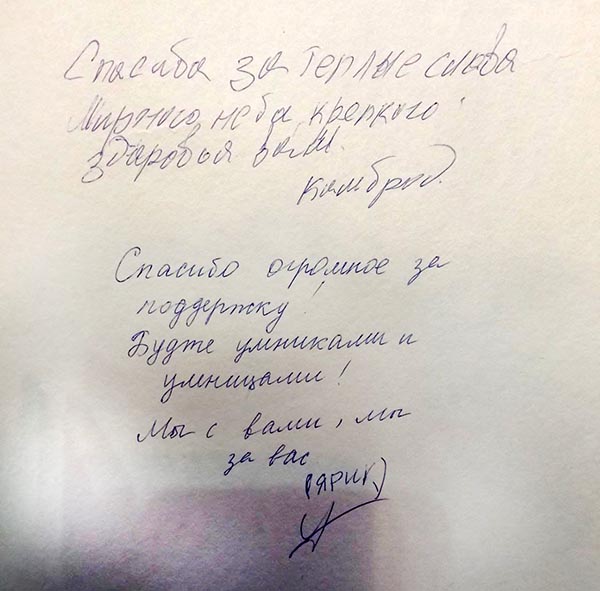 Спасиба за теплые слова
Мирного неба, крепкого
здаровья вам.
Камброд.
Спасибо огромное за
поддержку!
Будте умниками и
умницами!
Мы с вами, мы
за вас
(ЯРИК)